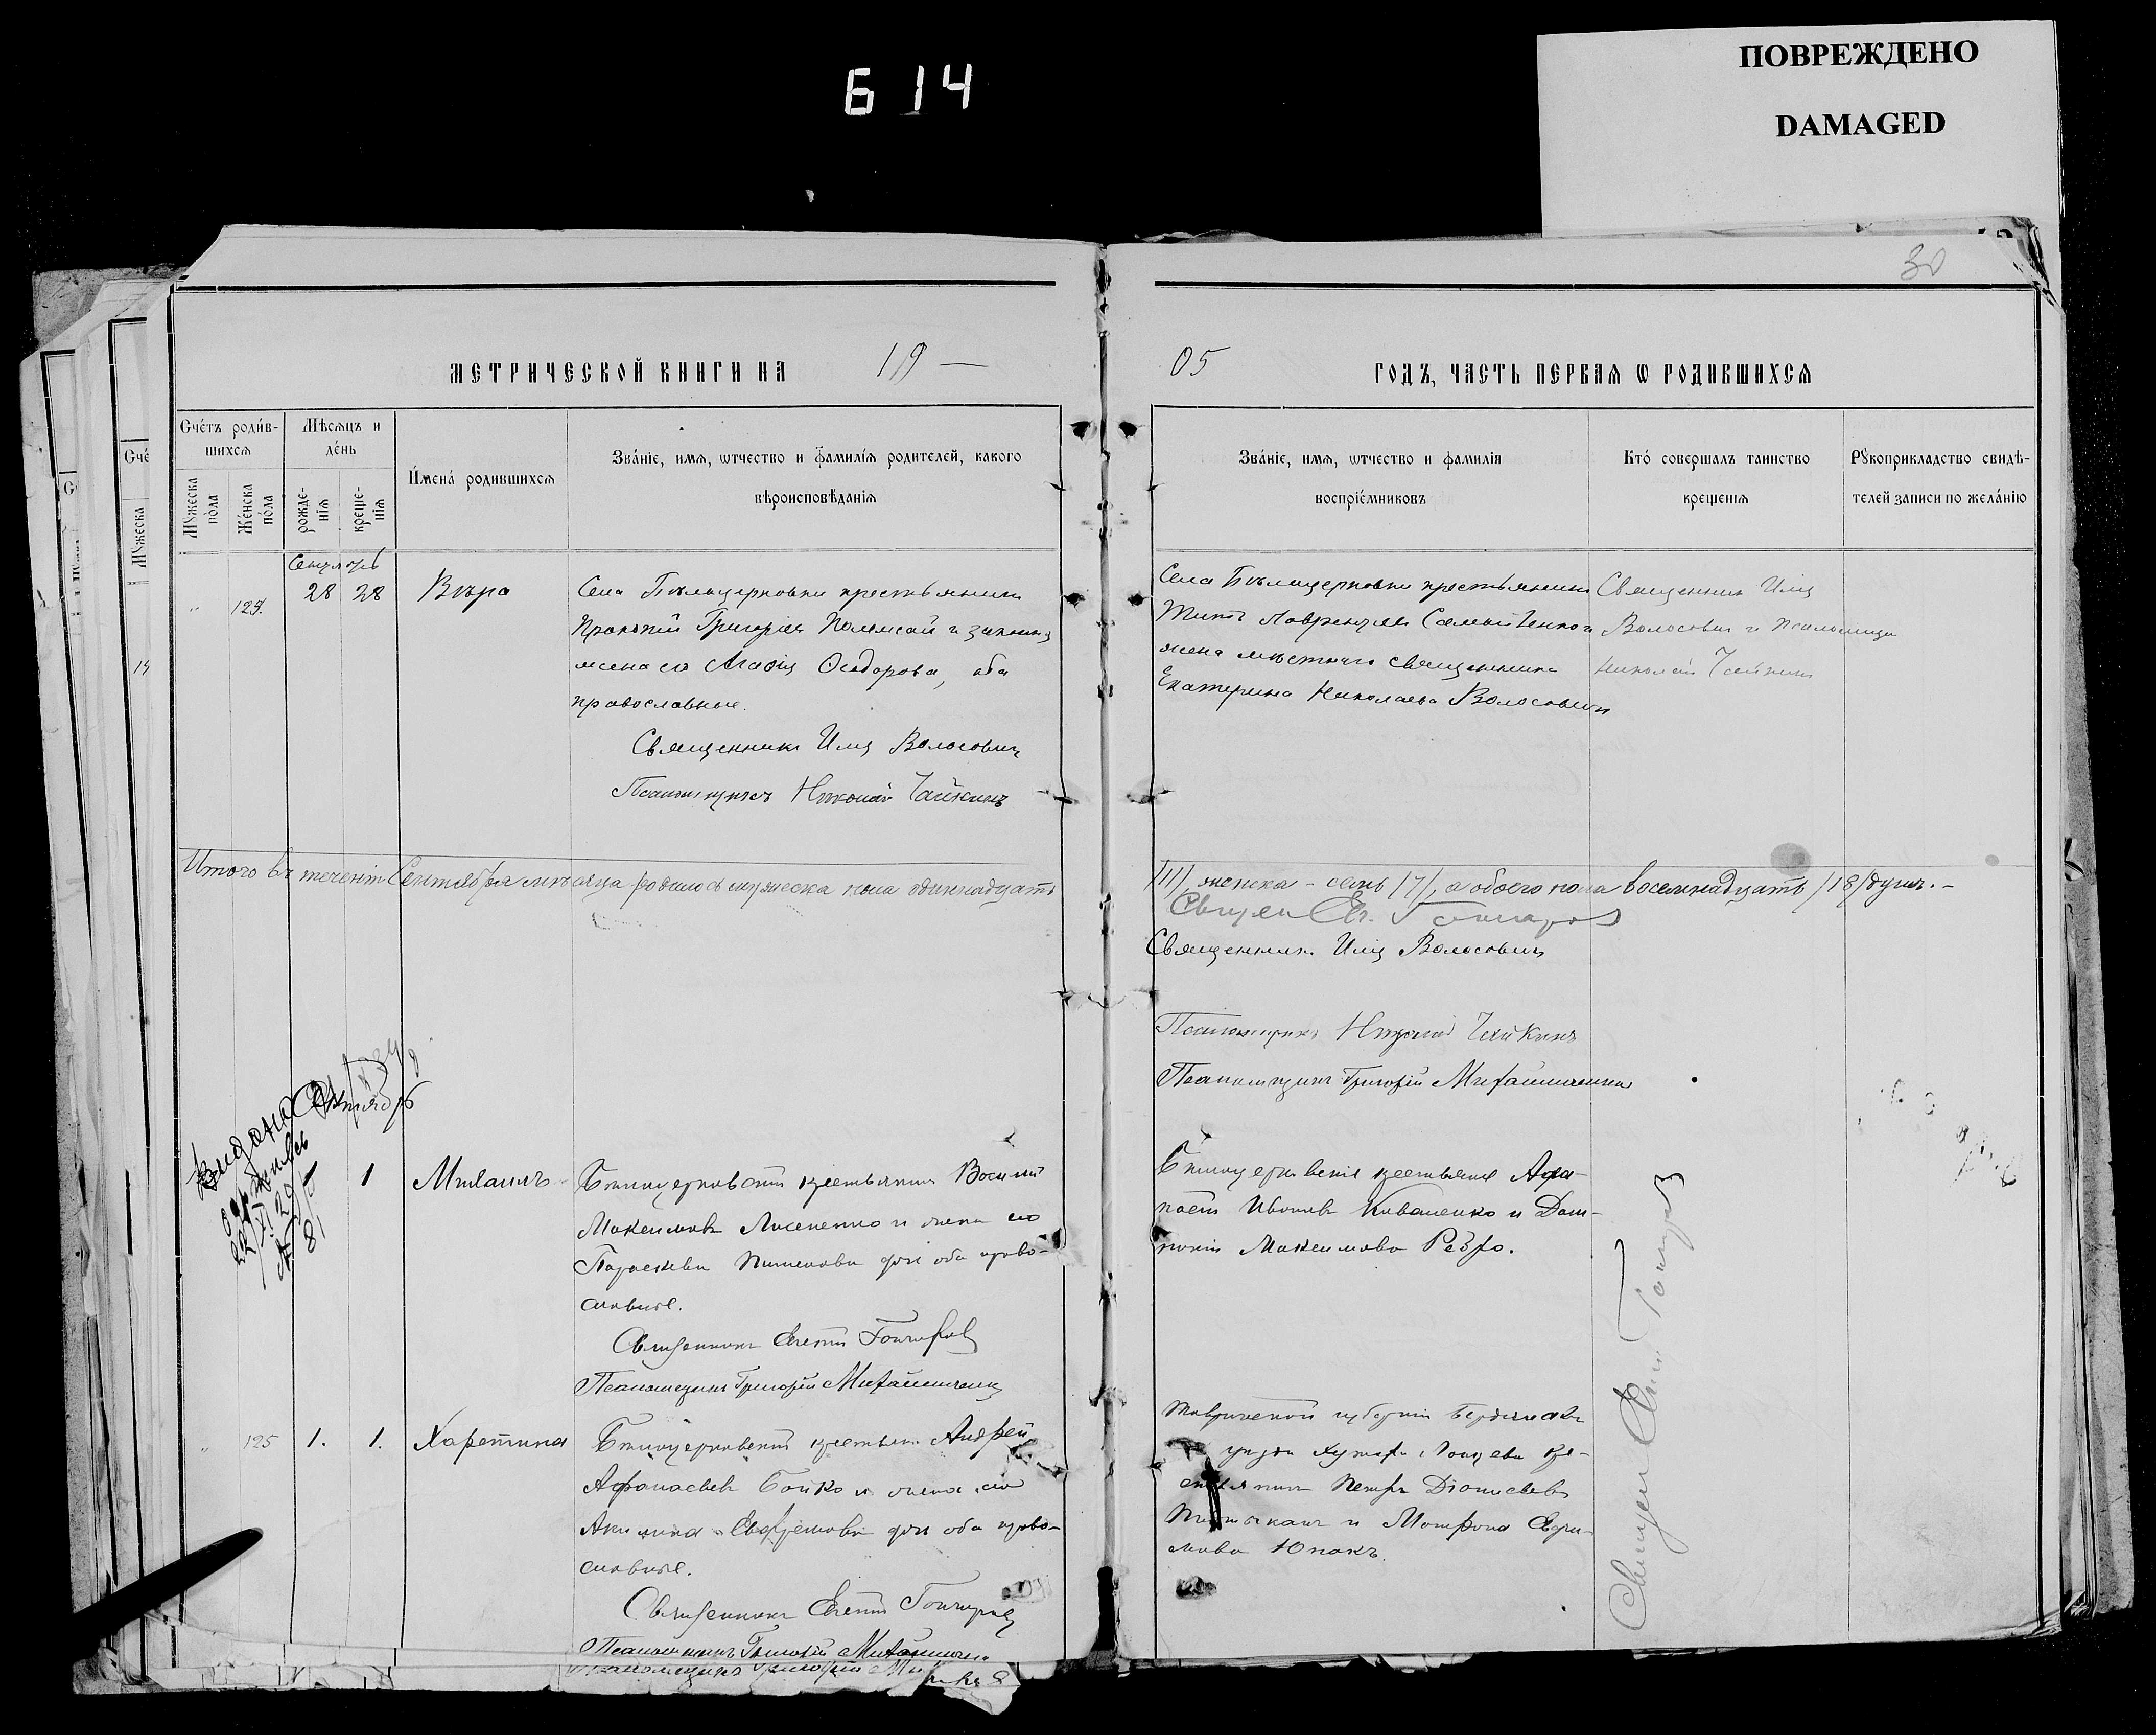 614
ПОВРЕЖДЕНО
DAMAGED
30
МЕТРИЧЕСКОЙ КНИГИ НА 19 —
05 ГОДЪ, ЧАСТЬ ПЕРВАЯ Ѡ РОДИВШИХСЯ
Счетъ родив-
шихся
Мѣсяцъ и
день
Имена родившихся
Званіе, имя, ѡтчество и фамилія родителей, какого
вѣроисповѣданія
Мужеска
пола
Женска
пола
рожде-
нія
креще-
нія
Званіе, имя, ѡтчество и фамилія
воспріемниковъ
Кто совершалъ таинство
крещенія
Рукоприкладство свидѣ-
телей записи по желанію
Сче
Мужеска
Сентябрь
" 124. 28 28 Вѣра
Села Бѣлоцерковки крестьянинъ
Прокопій Григоріевъ и законная
жена его Агафія Ѳеодорова, оба
православные.
Священникъ Илія Волосовичъ
Псаломщикъ Николай Чайкинъ
Села Бѣлоцерковки крестьянинъ
Титъ Лаврентіевъ Самойленко и
жена мѣстнаго священника
Екатерина Николаева Волосовичъ
Священникъ Илія
Волосовичъ и псаломщикъ
Николай Чайкинъ
Итого въ теченіи Сентября мѣсяца родилось мужеска пола одиннадцать
/11/, женска - семь /7/, а обоего пола восемнадцать /18/ душъ. -
Священ Ев. Гончаров
Священникъ Илія Волосовичъ
Псаломщикъ Николай Чайкинъ
Псаломщикъ Григорій Михайличенко
Октябрь
1 Михаилъ
Бѣлоцерковскій крестьянинъ Василій
Максимовъ Лисененко и жена его
Параскева Пименова дочь оба право-
славные.
Священникъ Евгеній Гончаровъ
Псаломщикъ Григорій Михайличенко
Бѣлоцерковскіе крестьяне Афа-
насій Ивановъ Коваленко и Дом-
никія Максимова Ребро.
" 125 1. 1. Харитина
Бѣлоцерковскій крестьян. Андрей
Афанасьевъ Бойко и жена его
Акилина Евфремова дочь оба право-
славные.
Священникъ Евгеній Гончаровъ
Псаломщикъ Григорій Михайличенко
Таврической губерніи Бердянскаго
уѣзда кре-
стьянинъ Петръ Діонисіевъ
и Матрона Ефи-
мова Юнакъ.
Священ Евгеній Гончаровъ